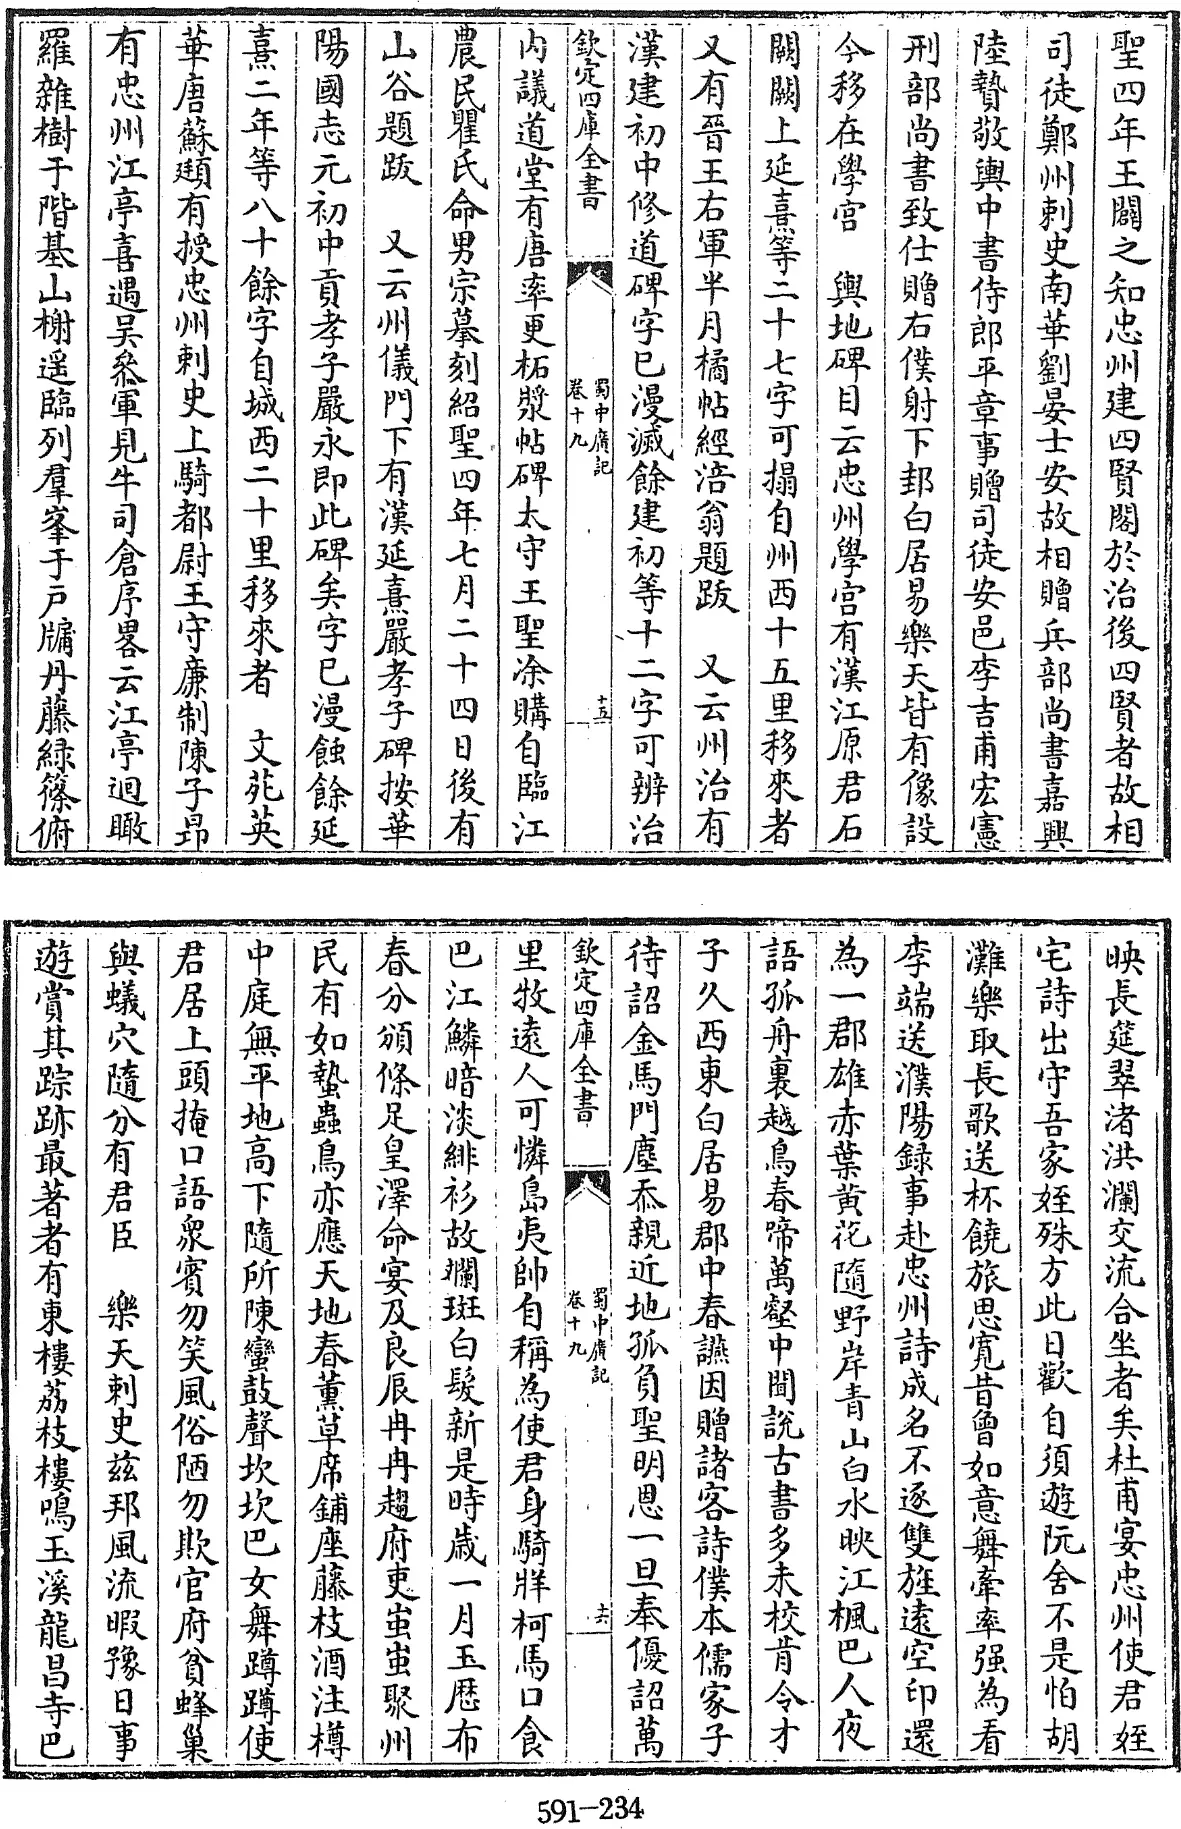 聖四年王闢之知忠州建四賢閣於治後四賢者故相
司徒鄭州刺史南華劉晏士安故相贈兵部尚書嘉興
陸贄敬輿中書侍郎平章事贈司徒安邑李吉甫宏憲
刑部尚書致仕贈右僕射下邽白居易樂天皆有像設
今移在學宮　輿地碑目云忠州學宮有漢江原君石
闕闕上延熹等二十七字可搨自州西十五里移來者
又有晉王右軍半月橘帖經涪翁題跋　又云州治有
漢建初中修道碑字已漫滅餘建初等十二字可辨治
欽定四庫全書
蜀中廣記
卷十九
十五
内議道堂有唐率更柘漿帖碑太守王聖涂購自臨江
農民瞿氏命男宗摹刻紹聖四年七月二十四日後有
山谷題跋　又云州儀門下有漢延熹嚴孝子碑按華
陽國志元初中貢孝子嚴永即此碑矣字已漫蝕餘延
熹二年等八十餘字自城西二十里移來者　文苑英
華唐蘇頲有授忠州刺史上騎都尉王守廉制陳子昻
有忠州江亭喜遇吳參軍見牛司倉序畧云江亭迴瞰
羅雜樹于階基山榭遥臨列羣峯于戸牖丹藤緑篠俯
映長筵翠渚洪瀾交流合坐者矣杜甫宴忠州使君姪
宅詩出守吾家姪殊方此日歡自須遊阮舍不是怕胡
灘樂取長歌送杯饒旅思寛昔曾如意舞牽率强為看
李端送濮陽録事赴忠州詩成名不逐雙旌遠空印還
為一郡雄赤葉黄花隨野岸青山白水映江楓巴人夜
語孤舟裏越鳥春啼萬壑中聞說古書多未校肯令才
子久西東白居易郡中春讌因贈諸客詩僕本儒家子
待詔金馬門塵忝親近地孤負聖明恩一旦奉優詔萬
欽定四庫全書
蜀中廣記
卷十九
十六
里牧遠人可憐島夷帥自稱為使君身騎牂柯馬口食
巴江鱗暗淡緋衫故斕斑白髮新是時歲一月玉厯布
春分頒條足皇澤命宴及良辰冉冉趨府吏蚩蚩聚州
民有如蟄蟲鳥亦應天地春薰草席鋪座藤枝酒注樽
中庭無平地高下隨所陳蠻鼓聲坎坎巴女舞蹲蹲使
君居上頭掩口語衆賓勿笑風俗陋勿欺官府貧蜂巢
與蟻穴隨分有君臣　樂天刺史兹邦風流暇豫日事
遊賞其踪跡最著者有東樓荔枝樓鳴玉溪龍昌寺巴
591-234